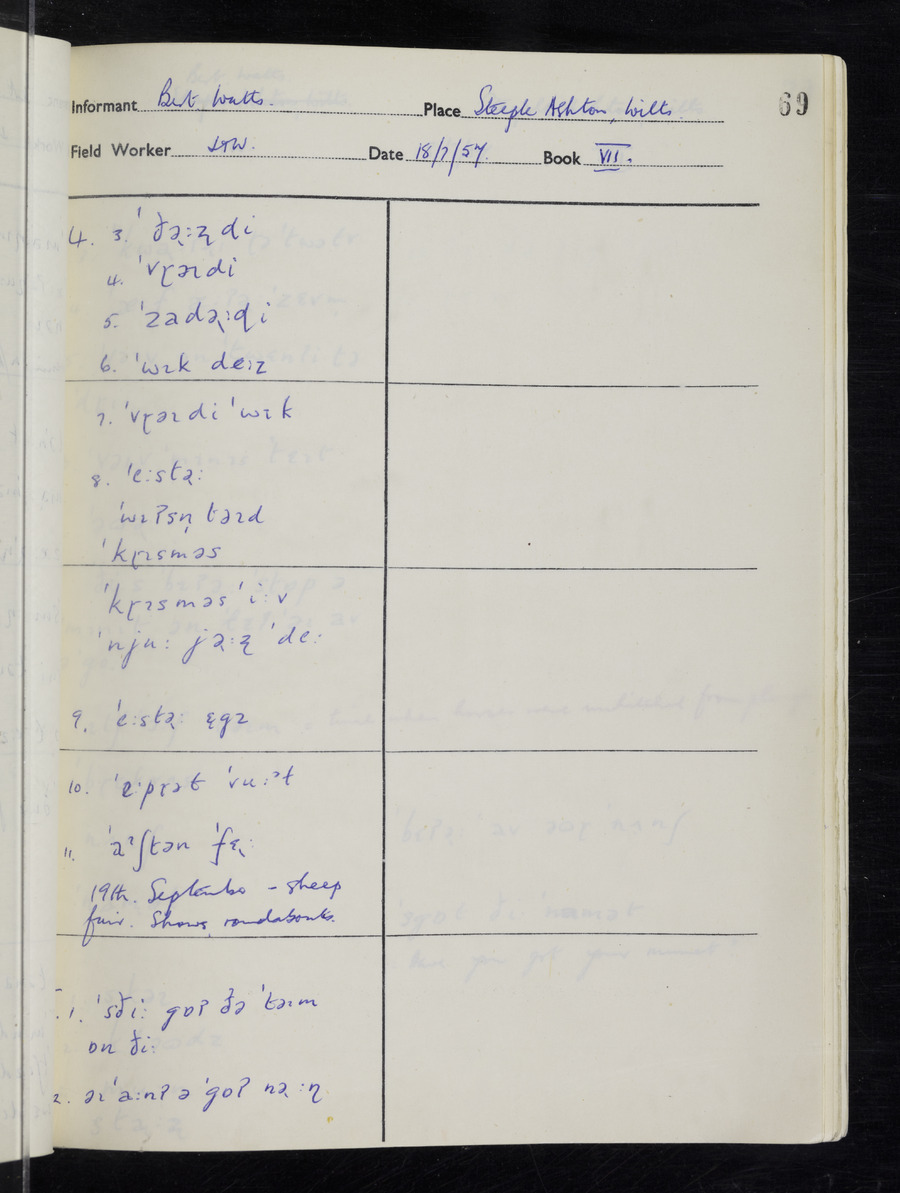 Informant Bert Watts. Place Steeple Ashton, Wilts. 69
Field Worker Date 18/7/57. Book VII.
4. 3. ˈðəː̢ʐdi
4. ˈvɽəɪdi
5. ˈzadə̢ːdi
6. ˈwɪk deːz
7. ˈvɽəɪdi ˈwɪk
8. ˈeːstə̢ː
ˈwɪʔsn̩ təɪd
ˈkɽɪsməs
ˈkɽɪsməs ˈiːv
ˈnjuː jə̢ːʐ ˈdeː
9. ˈeːstə̢ː ęgz
10. ˈeːpɽət ˈvuːᵊt
11. ˈaˀʃtən
19th. September – sheep
fair. Shows, roundabouts.
1. ˈsðiː gɒʔ ðə ˈtəɪm
ɒn ðiː
2. əɪ ˈaːnʔ ə ˈgɒʔ nə̢ːɳ